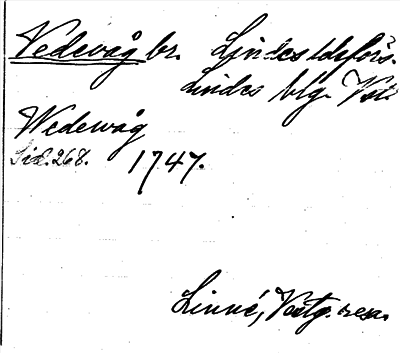 Vedevåg br. Lindes ldsförs.
Lindes blg. Vstl.
Wedewåg
Sid. 268. 1747.
Linné, Vestg. resa.